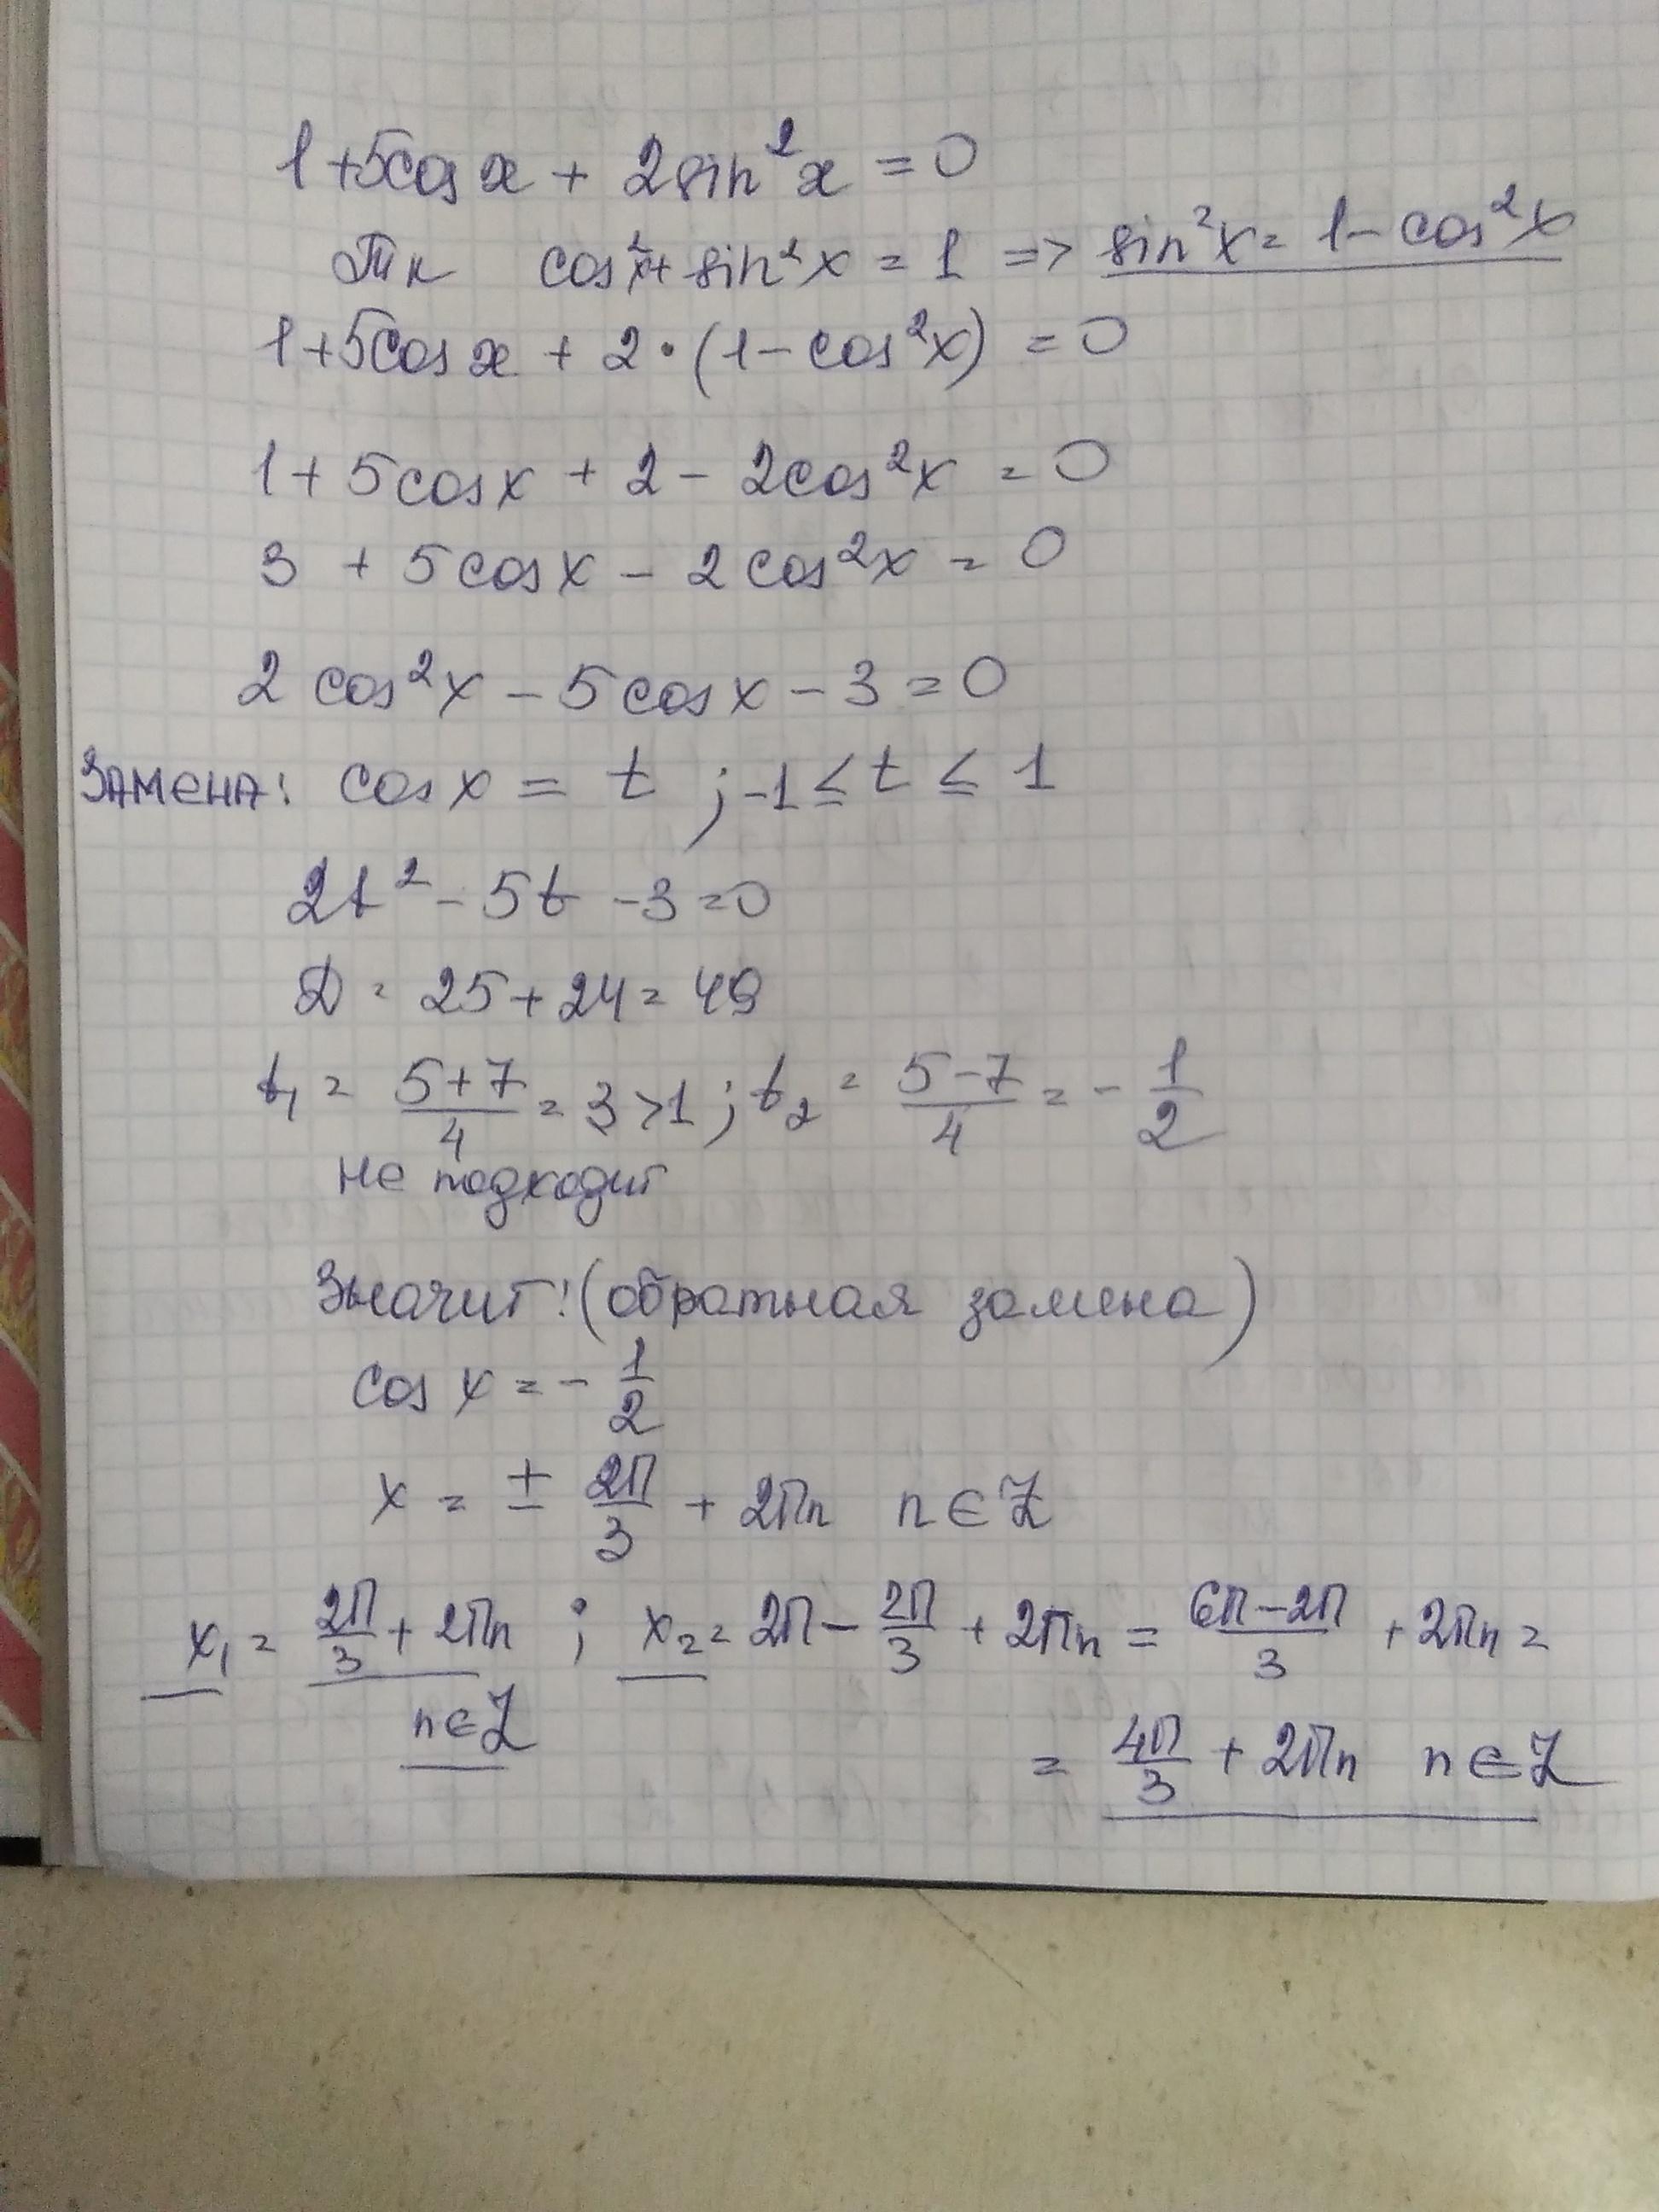 1+5cos x + 2sin²x = 0
Тк cos²x + sin²x = 1 => sin²x = 1 - cos²x
1+5cos x + 2·(1 - cos²x) = 0
1 + 5cosx + 2 - 2cos²x = 0
3 + 5cosx - 2cos²x = 0
2cos²x - 5cosx - 3 = 0
ЗАМЕНА: cos x = t ; -1 ≤ t ≤ 1
2t² - 5t - 3 = 0
D = 25 + 24 = 49
t₁ = (5+7)/4 = 3 > 1 ; t₂ = (5-7)/4 = - 1/2
не подходит
Значит: (обратная замена)
cos x = - 1/2
x = ± 2П/3 + 2Пn n ∈ Z
x₁ = 2П/3 + 2Пn ; x₂ = 2П - 2П/3 + 2Пn = (6П-2П)/3 + 2Пn =
n ∈ Z
= 4П/3 + 2Пn n ∈ Z